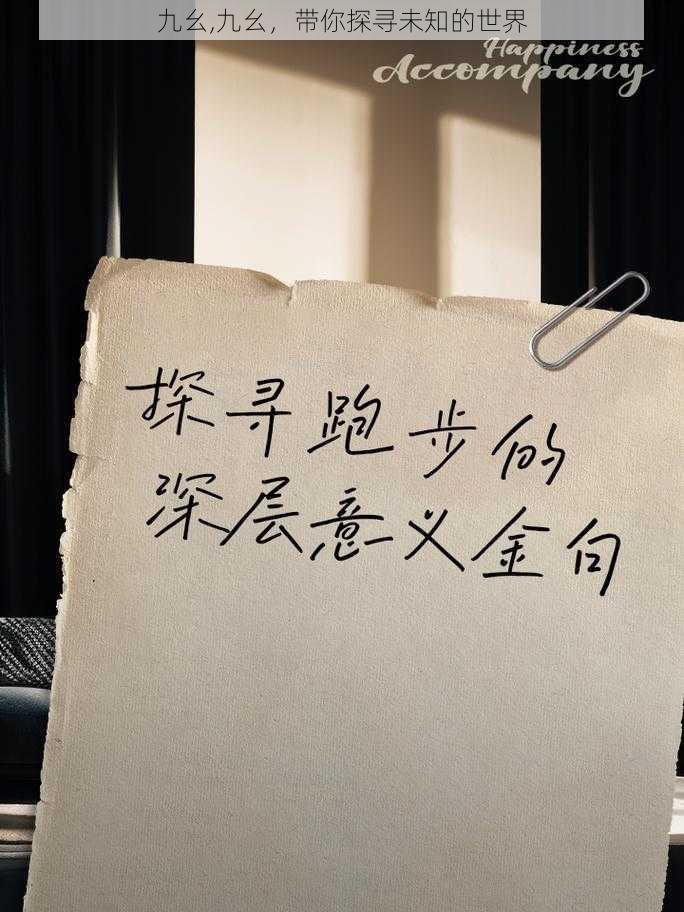 九幺,九幺，带你探寻未知的世界
Happiness
Accompany
探寻跑步的
深层意义金句